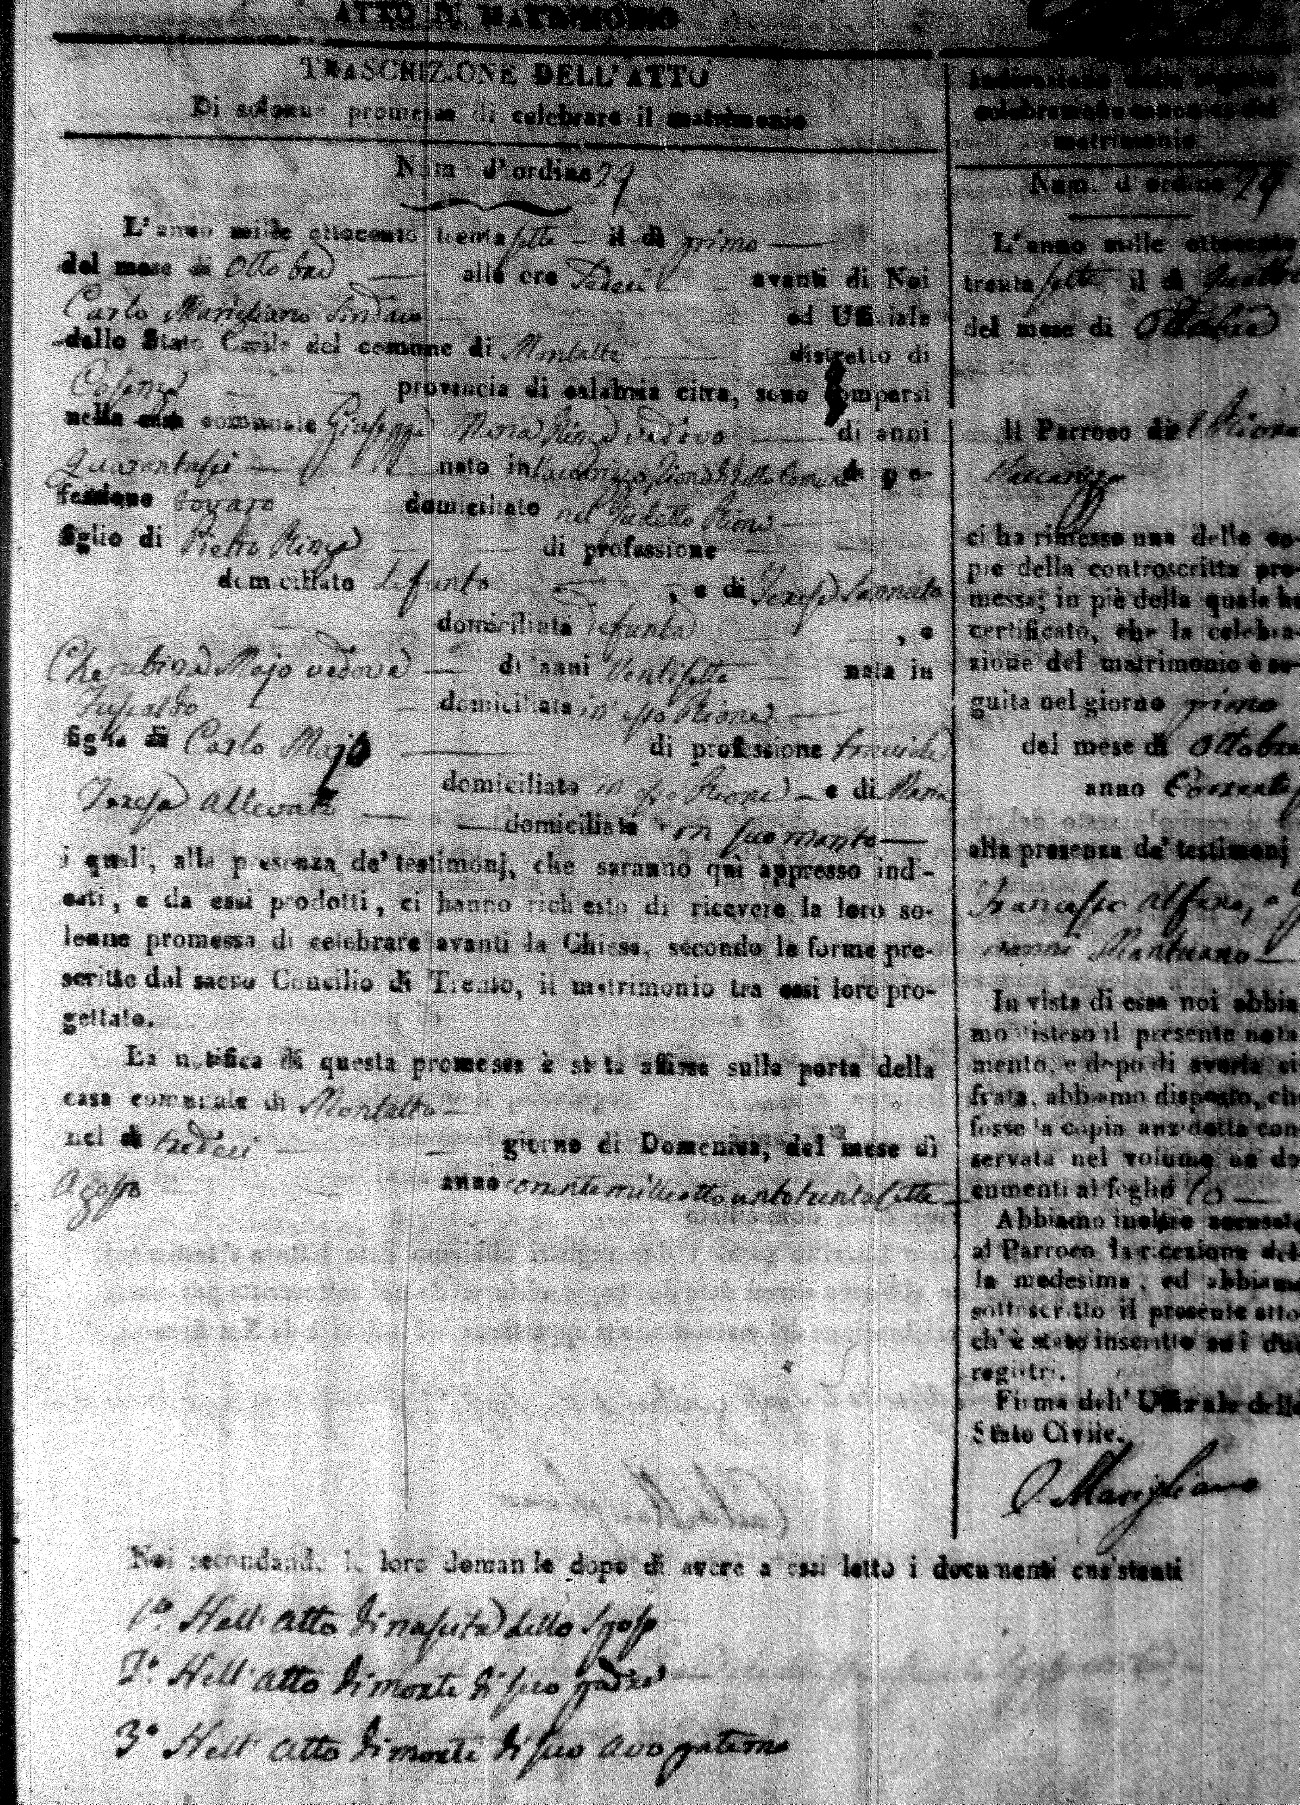 ATTO DI MATRIMONIO
TRASCRIZIONE DELL'ATTO
Di solenne promessa di celebrare il matrimonio
Num d'ordine 29
L'anno mille ottocento trentasette il di primo
del mese di Ottobre alle ore avanti di Noi
Carlo Marigliano Sindaco ed Uffiziale
dello Stato Civile del comune di Montalto distretto di
Cosenza provincia di calabria citra, sono comparsi
nella casa comunale Giuseppe Maria vedovo di anni
Quarantasei nato in di pro-
fessione domiciliato nel Rione
figlio di Pietro di professione
domiciliato defunto , e di Teresa
domiciliata defunta , e
Cherubina Majo vedova di anni Ventisette nata in
Fuscaldo domiciliata in esso Rione
figlia di Carlo Majo di professione
domiciliato in esso Rione e di Maria
Teresa domiciliata con suo marito
i quali, alla presenza de' testimonj, che saranno quì appresso indi-
cati, e da essi prodotti, ci hanno richiesto di ricevere la loro so-
lenne promessa di celebrare avanti la Chiesa, secondo le forme pre-
scritte dal sacro Concilio di Trento, il matrimonio tra essi loro pro-
gettato.
La notifica di questa promessa è stata affissa sulla porta della
casa comunale di Montalto
nel di tredeci giorno di Domenica, del mese di
Agosto anno corrente milleottocentotrentasette
Indicazione della seguita
celebrazione canonica del
matrimonio
Num. d'ordine 29
L'anno mille ottocento
trentasette il di
del mese di Ottobre
Il Parroco del Rione
ci ha rimesso una delle co-
pie della controscritta pro-
messa; in piè della quale ha
certificato, che la celebra-
zione del matrimonio è se-
guita nel giorno primo
del mese di Ottobre
anno Corrente
alla presenza de' testimonj
Francesco
Mantuano
In vista di essa noi abbia-
mo disteso il presente nota-
mento, e dopo di averla ci-
frata, abbiamo disposto, che
fosse la copia anzidetta con-
servata nel volume de' do-
cumenti al foglio 10
Abbiamo inoltre accusato
al Parroco la ricezione del-
la medesima, ed abbiamo
sottoscritto il presente atto
ch'è stato inscritto su i due
registri.
Firma dell'Uffiziale dello
Stato Civile.
C. Marigliano
Noi secondando le loro domande dopo di avere a essi letto i documenti consistenti
1º. Nell'atto di nascita dello sposo
2º. Nell'atto di morte di suo padre
3º Nell'atto di morte di suo avo paterno